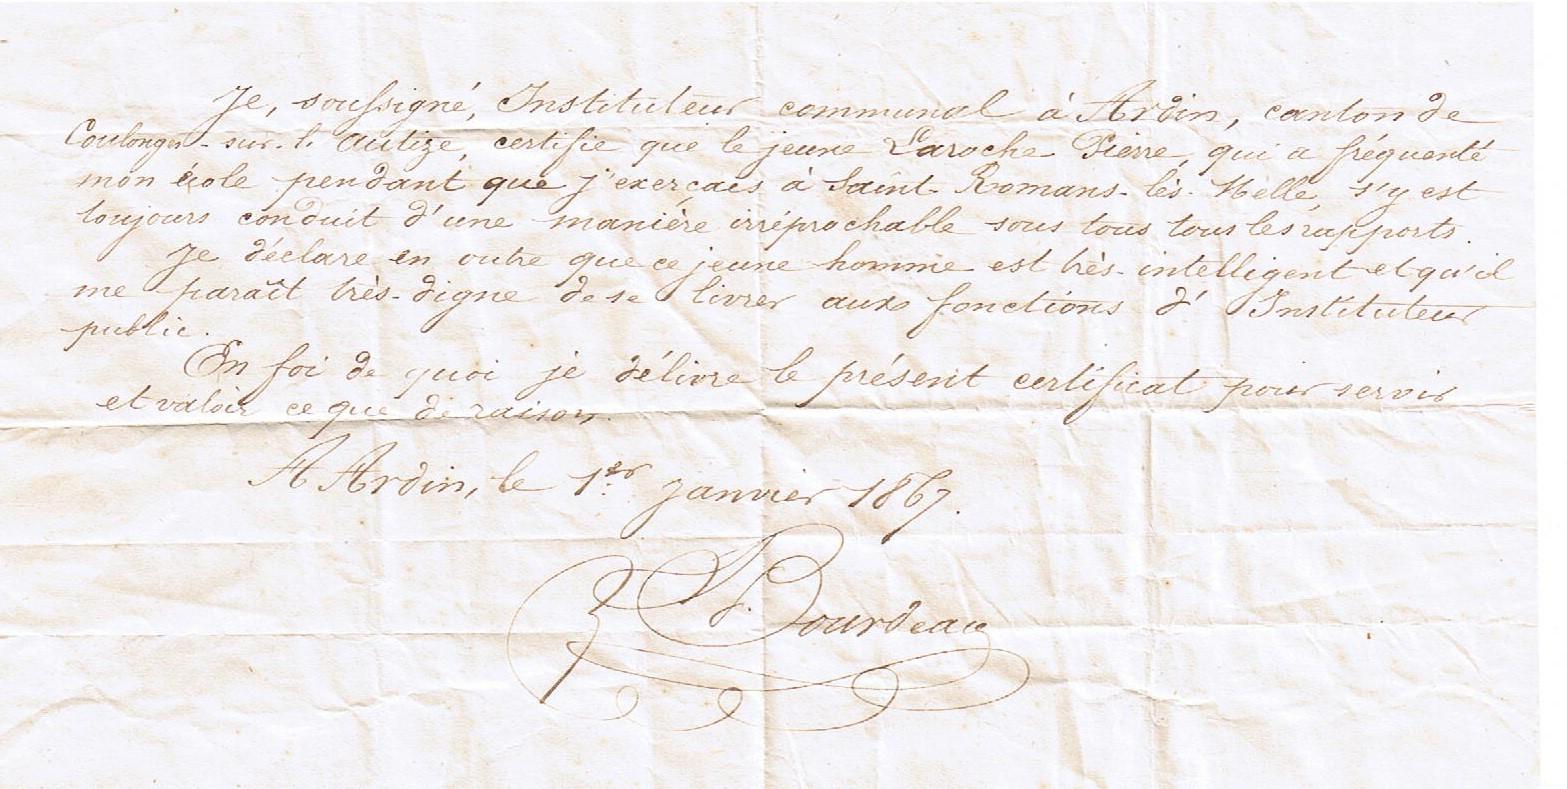 Je, soussigné, Instituteur communal à Ardin, canton de
Coulonges-sur-l'Autize, certifie que le jeune Laroche Pierre, qui a fréquenté
mon école pendant que j'exerçais à Saint-Romans-lès-Melle, s'y est
toujours conduit d'une manière irréprochable sous tous tous les rapports.
Je déclare en outre que ce jeune homme est très-intelligent et qu'il
me paraît très-digne de se livrer aux fonctions d'Instituteur
public.
En foi de quoi je délivre le présent certificat pour servir
et valoir ce que de raison.
A Ardin, le 1er janvier 1867.
Bourdeau